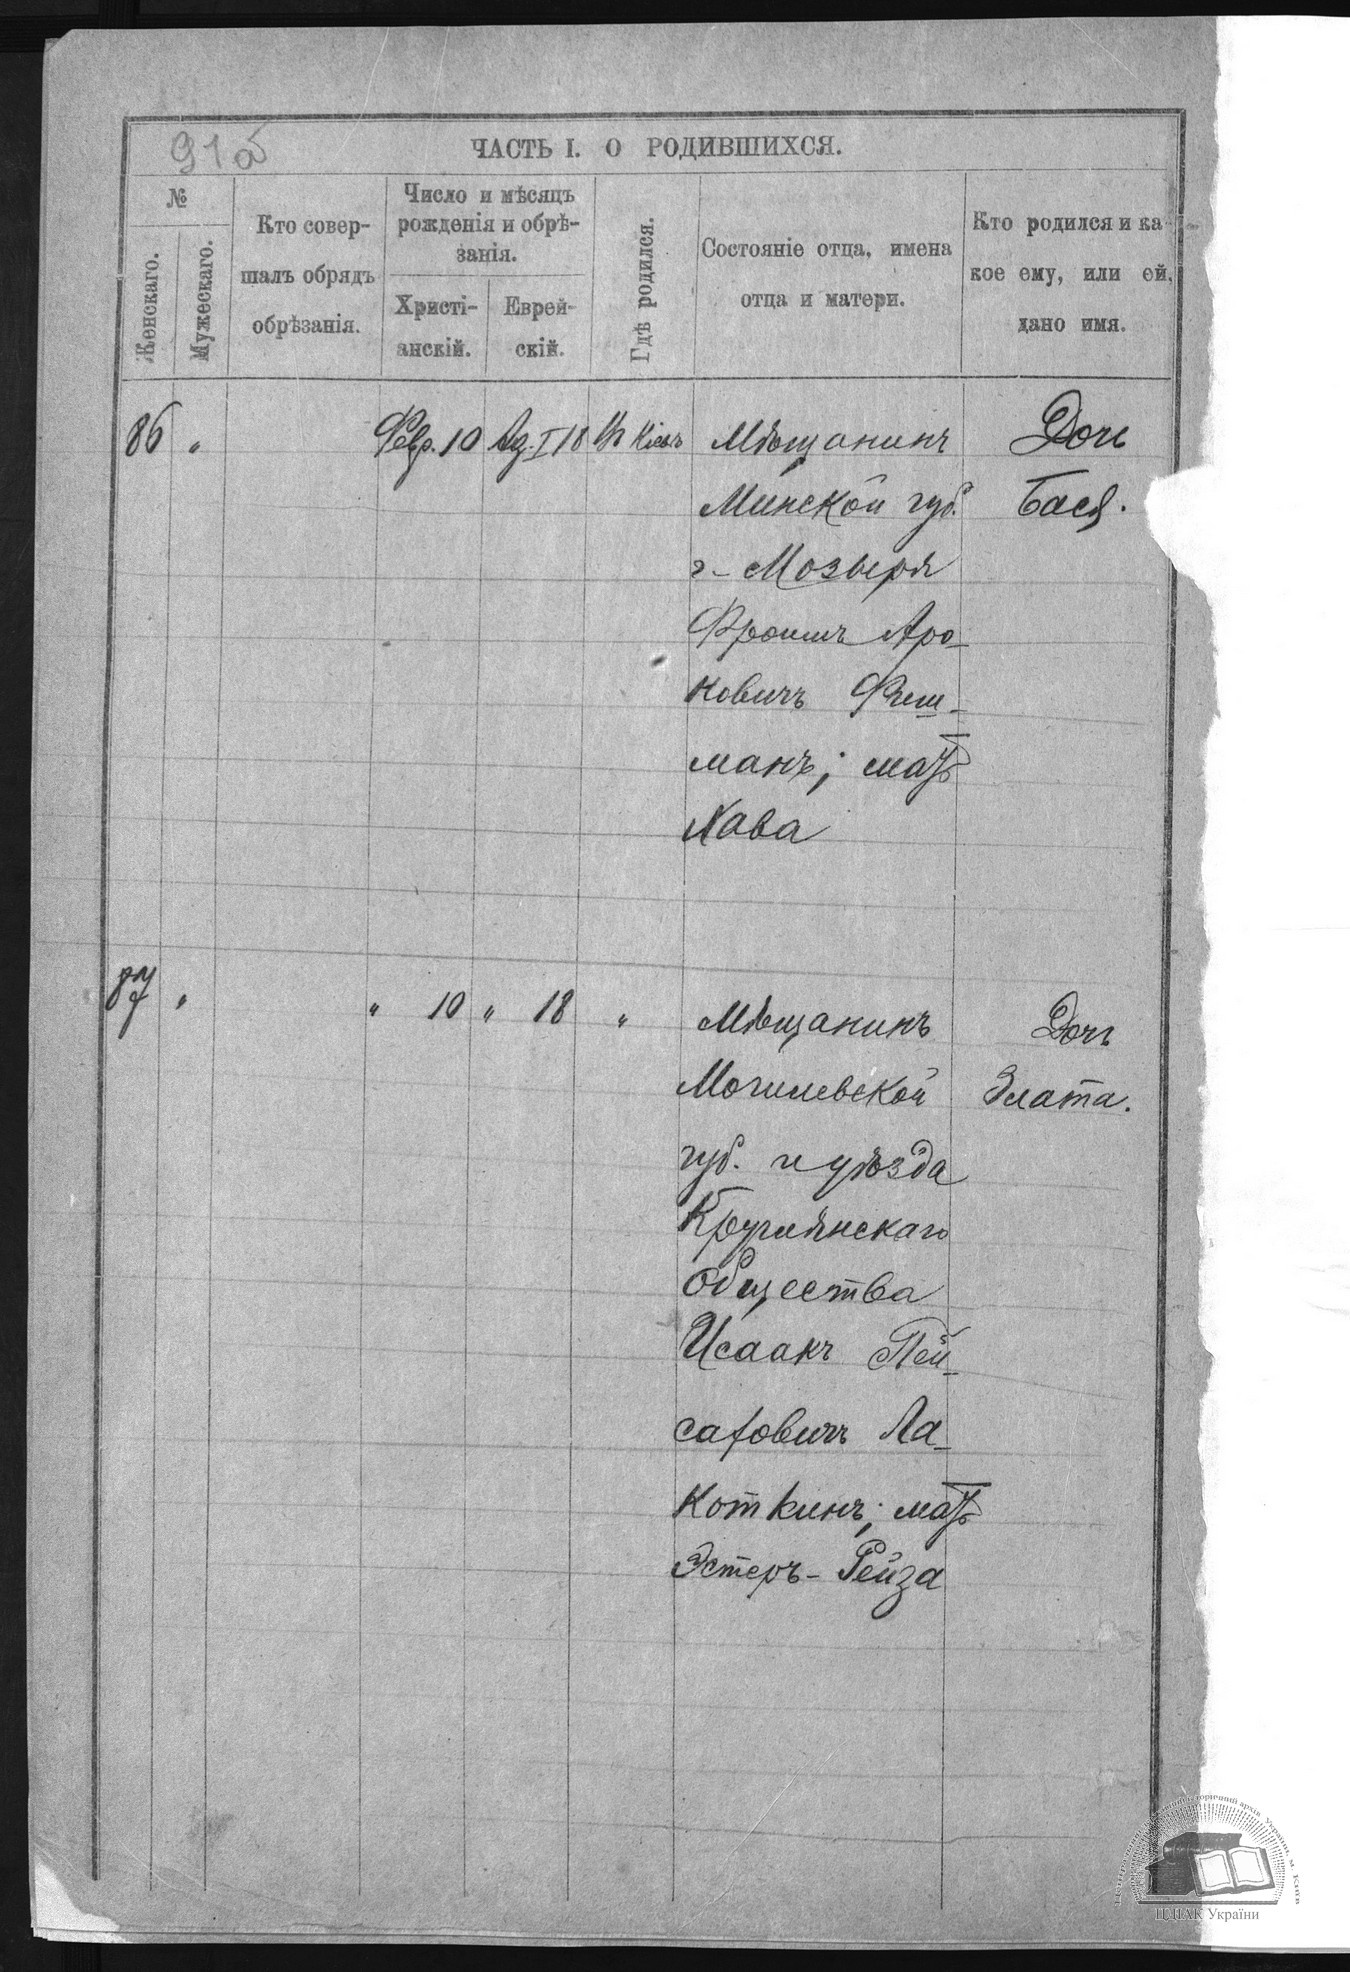 91а
ЧАСТЬ I. О РОДИВШИХСЯ.
№
Женскаго.
Мужескаго.
Кто совер-
шалъ обрядъ
обрѣзанія.
Число и мѣсяцъ
рожденія и обрѣ-
занія.
Христі-
анскій.
Еврей-
скій.
Гдѣ родился.
Состояніе отца, имена
отца и матери.
Кто родился и ка-
кое ему, или ей,
дано имя.
86 " Февр. 10 Ад. I 18 Въ Кіевѣ Мѣщанинъ Дочь
Минской губ. Бася.
г- Мозыря
Фроимъ Аро-
новичъ Фиш-
манъ; мать
Хава
87 " " 10 " 18 " Мѣщанинъ Дочь
Могилевской Злата.
губ. и уѣзда
Круглянскаго
Общества
Исааκъ Пей-
саховичъ Ла-
коткинъ; мать
Эстеръ-Рейза
ЦДІАК України